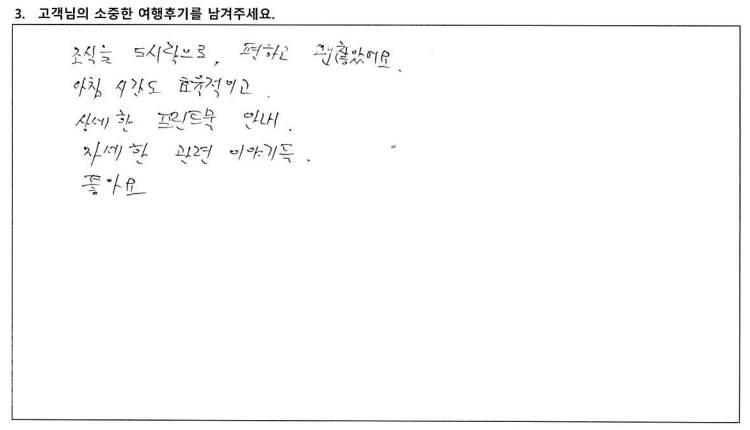 3. 고객님의 소중한 여행후기를 남겨주세요.
조식을 도시락으로, 편하고 괜찮았어요.
아침 시간도 효율적이고.
상세한 프린트물 안내.
자세한 관련 이야기들.
좋아요